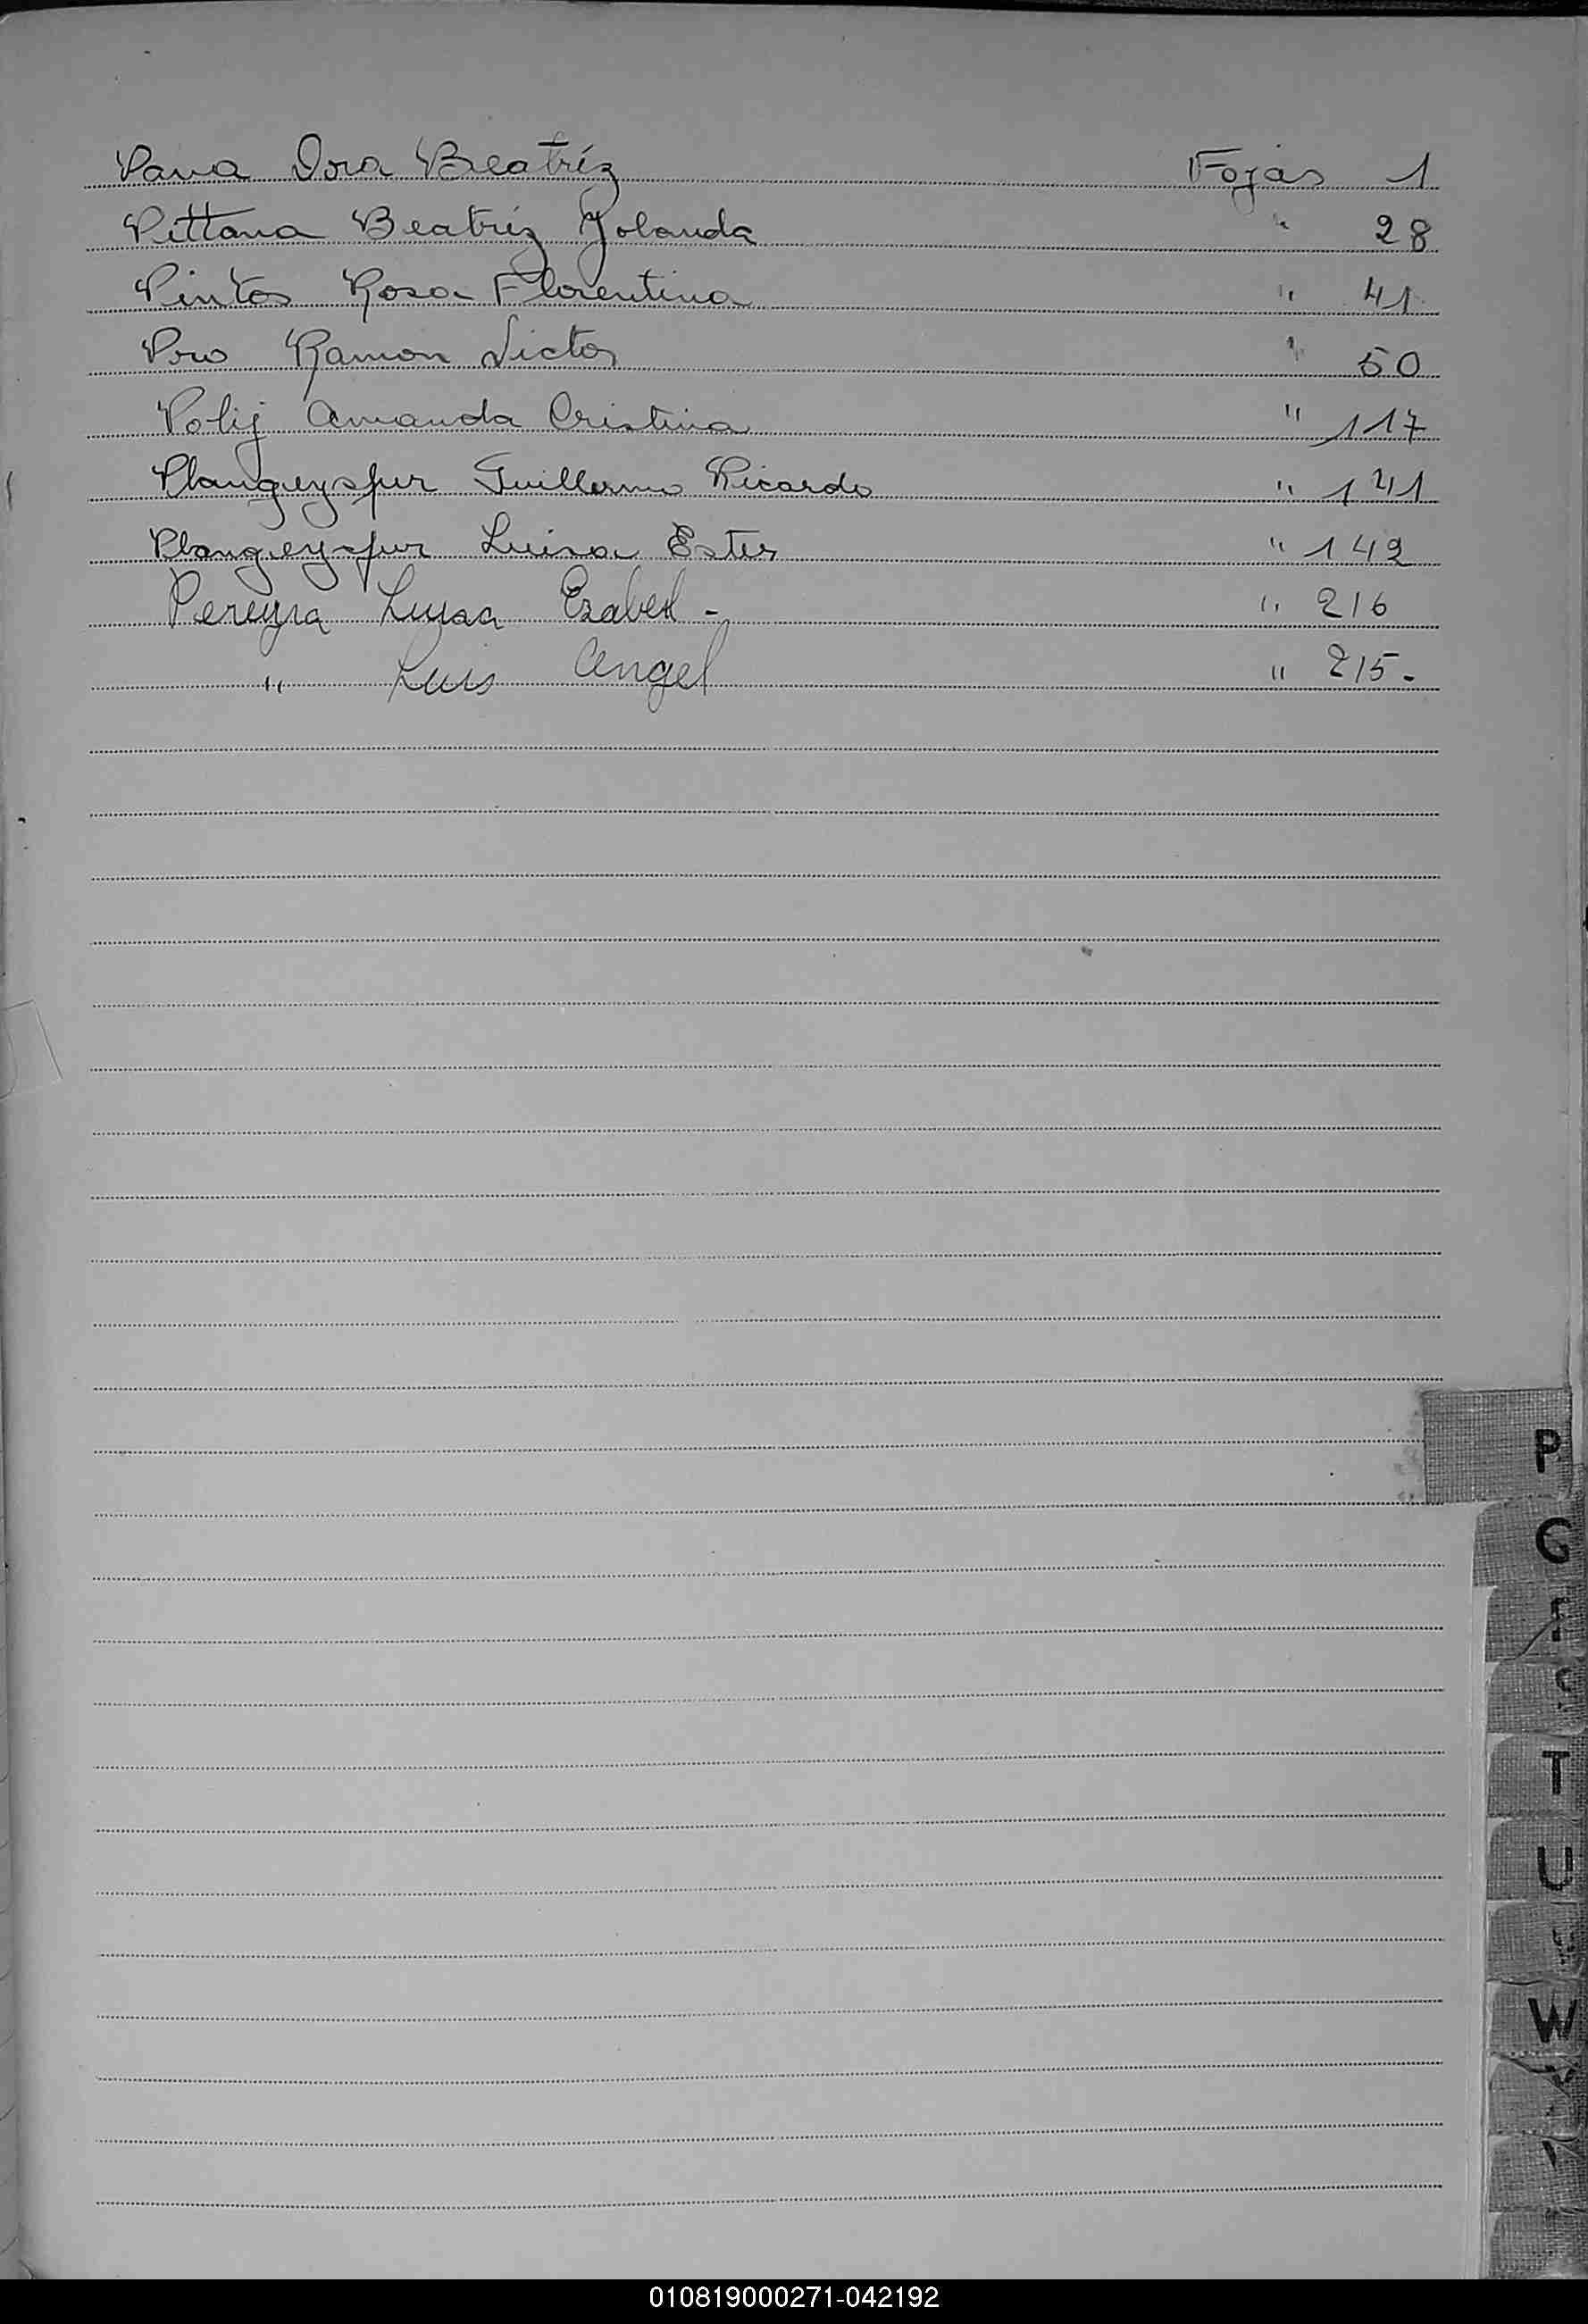 Pava Dora Beatríz Fojas 1
Pittana Beatriz Yolanda " 28
Pintos Rosa Florentina " 41
Pro Ramon Victor " 50
Polij Amanda Cristina " 117
Plangeyspur Guillermo Ricardo " 141
Plangeyspur Luisa Ester " 142
Pereyra Luisa Ezabel - " 216
" Luis Angel " 215.-
P
T
U
W
010819000271-042192